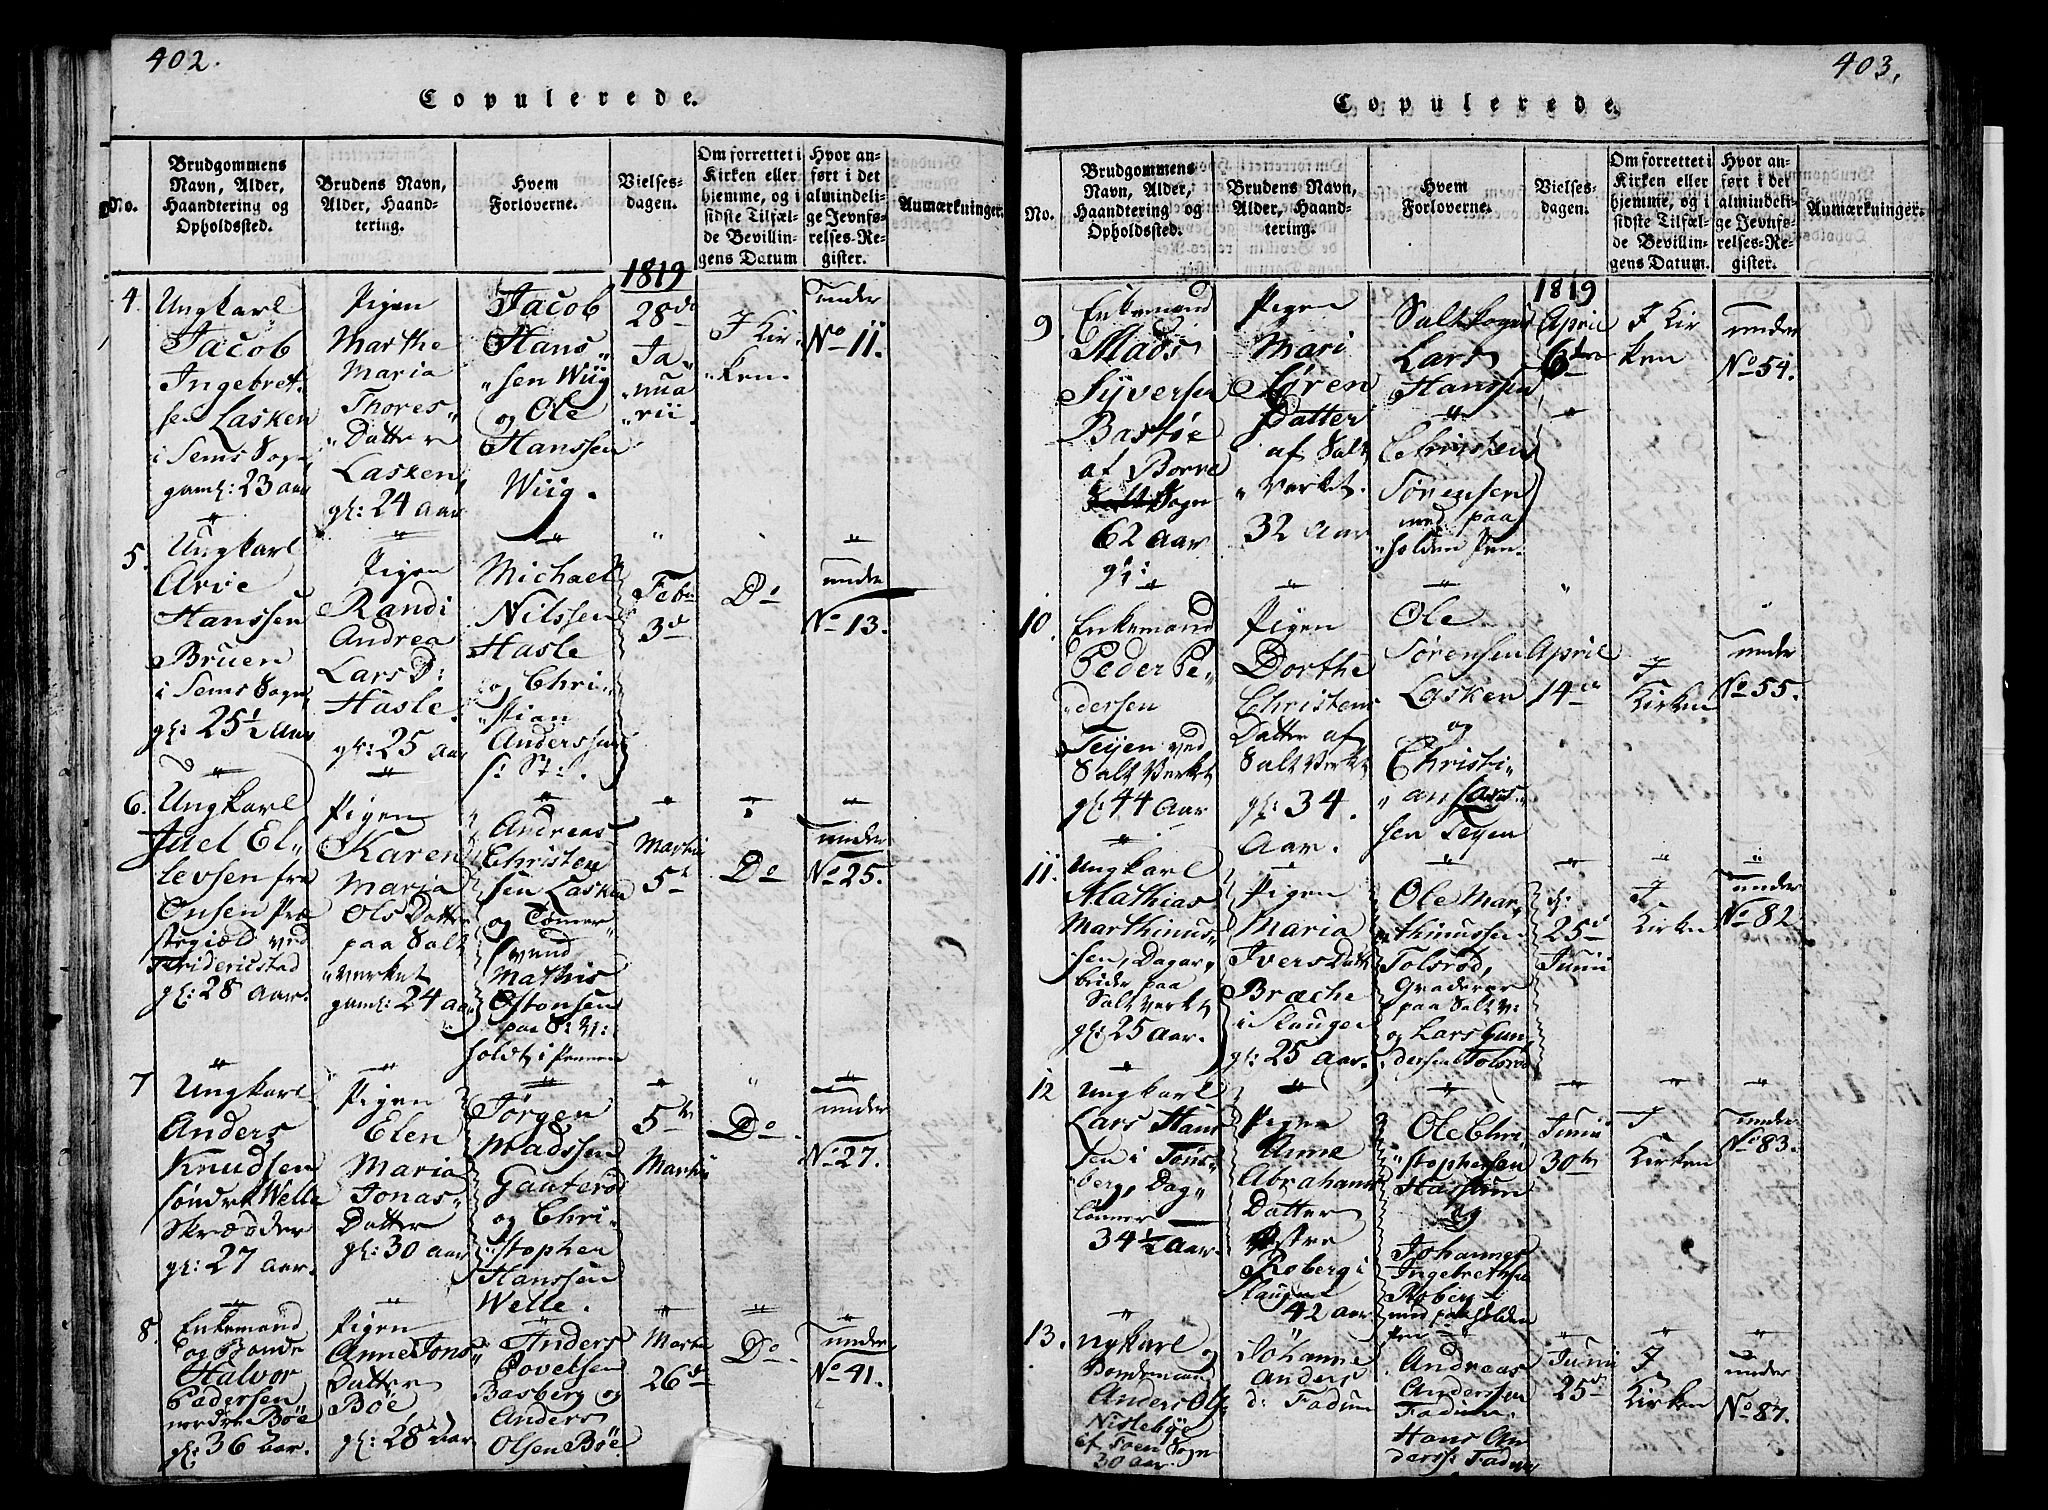 402.
Copulerede.
No.
Brudgommens
Navn, Alder,
Haandtering og
Opholdssted.
Brudens Navn,
Alder, Haand-
tering.
Hvem
Forloverne.
Vielses-
dagen.
Om forrettet i
Kirken eller
hjemme, og i
sidste Tilfæl-
de Bevillin-
gens Datum
Hvor an-
ført i det
almindeli-
ge Jevnfø-
relses-Re-
gister.
Anmærkninger.
1819
4.
Ungkarl
Jacob
Ingebret-
sen Lasken
i Sems Sogn
gaml: 23 aar
Pigen
Marthe
Maria
Thores
Datter
Lasken
gl: 24 aar
Jacob
Hans
sen Wiig
og Ole
Hanssen
Wiig.
28de
Ja
nua
rii.
I Kir
ken.
under
No 11.
5.
Ungkarl
Arve
Hanssen
Bruen
i Sems Sogn
gl: 25½ aar
Pigen
Randi
Andrea
Lars D:
Hasle.
gl: 25 aar
Michael
Nilssen
Hasle
og Chri
stian
Anderssen
Febr
3d
Do
under
No 13.
6.
Ungkarl
Juel El
levsen fra
Onsen Præ
stegield ved
Fridericstad
gl: 28 aar.
Pigen
Karen
Maria
Ols Datter
paa Salt
verket
gaml: 24 aar
Andreas
Christen
sen Lasken
og Tømer
svend
Mathis
Ostonsen
paa S: V:
holdt i Pennen
Martii
5t
Do
under
No 25.
7
Ungkarl
Anders
Knudsen
søndre Welle
Skrædder
gl: 27 aar.
Pigen
Elen
Maria
Jonas
Datter
gl: 30 aar
Jørgen
Madssen
Gauterød
og Chri
stopher
Hanssen
Welle.
5te
Martii
Do.
under
No 27.
8.
Enkemand
og Bonde
Halvor
Pedersen
nordre Bøe
gl: 36 aar.
Pigen
Anne Jons
Datter
Bøe
gl: 28 aar
Anders
Povelsen
Basberg og
Anders
Olsen Bøe
Martii
26de
Do.
under
No 41.
403.
Copulerede.
No.
Brudgommens
Navn, Alder,
Haandtering og
Opholdssted.
Brudens Navn,
Alder, Haand-
tering.
Hvem
Forloverne.
Vielses-
dagen.
Om forrettet i
Kirken eller
hjemme, og i
sidste Tilfæl-
de Bevillin-
gens Datum.
Hvor an-
ført i det
almindeli-
ge Jevnfø-
relses-Re-
gister.
Anmærkninger.
1819
9
Enkemand
Mads
Syversen
Bastøe
af Borre
Sogn
62 aar
gl:
Pigen
Mari
Søren
Datter
af Salt
verket.
32 aar
Lars
Hanssen
Christen
Sørensen
med paa
holden Pen.
April
6den
I Kir
ken
under
No 54.
10.
Enkemand
Peder Pe
dersen
Teijen ved
Salt Verket
gl: 44 aar
Pigen
Dorthe
Christens
Datter af
Salt Verket
gl: 34.
Aar.
Ole
Sørensen
Lasken
og
Christi
an Lars
sen Teyen
April
14de
I
Kirken
under
No 55.
11.
Ungkarl
Mathias
Marthinus
sen, Dagar
beider paa
Salt Verket
gl: 25 aar.
Pigen
Maria
Ivers Datt
Bræche
i Slaugen
gl: 25 aar.
Ole Mar
thinussen
Tolsrød,
Graderer
paa Salt V:
og Lars Gun
dersen Tolsrød
d:
25d
Junii
I
Kirken
under
No 82
12
Ungkarl
Lars Hans
sen i Tøns
berg, Dag
lønner
34½ aar.
Pigen
Anne
Abrahams
Datter
Østre
Roberg i
Slaugen
42 aar
Ole Chri
stophersen
Hassum
og
Johannes
Ingebrethsen
Roberg
med paaholden
Pen
Junii
30te
I
Kirken
under
No 83.
13.
ngkarl og
Bondemand
Anders Ols
Nislebøe
af Soen Sogn
30 aar.
Johanne
Anders
d: Fadum
Andreas
Anderssen
Fadum.
Hans An
derss: Fadum
Junii
25de
I
Kirken
under
No 87.